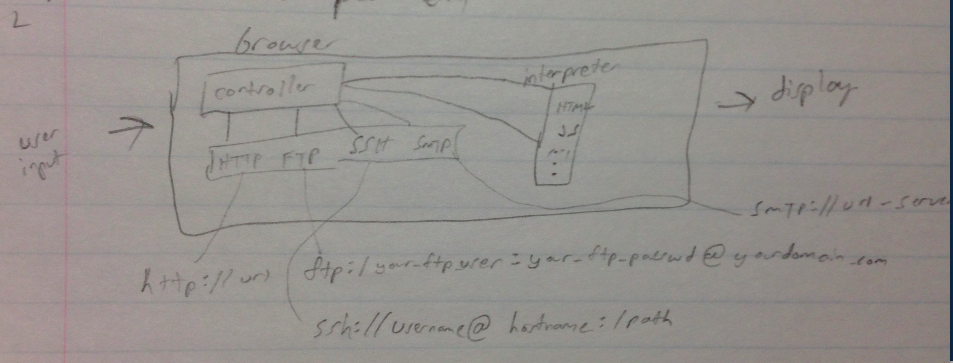 2
browser
controller
interpreter
display
HTML
JS
user
input
HTTP FTP SSH SMTP
smtp://url-server
http://url
ftp:/your_ftp_user:your_ftp_passwd@yourdomain.com
ssh://username@hostname:/path